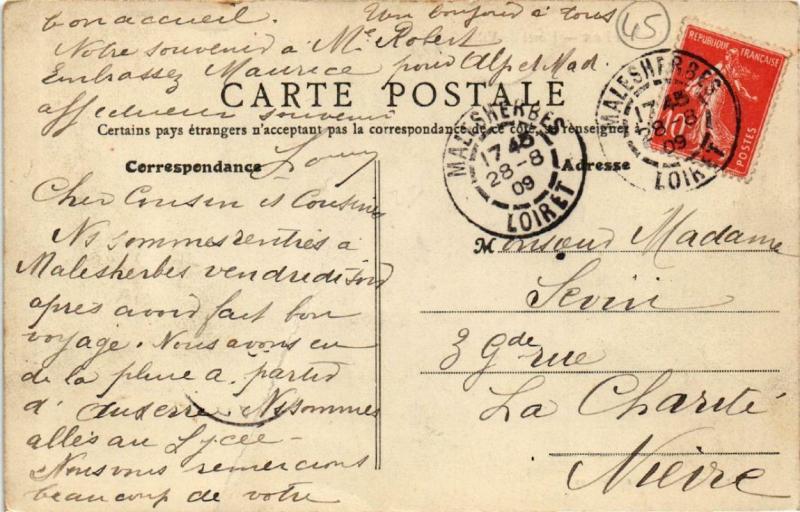 bon accueil. Un bonjour à tous
Notre souvenir à Me Robert
Embrassez Maurice pour
affectueux souvenir
45
CARTE POSTALE
Certains pays étrangers n'acceptant pas la correspondance de ce côté, se renseigner
Correspondance
Adresse
REPUBLIQUE FRANÇAISE
10
POSTES
MALESHERBES
17 45
28 - 8
09
LOIRET
MALESHERBES
17 45
28 - 8
09
LOIRET
Cher Cousin et Cousine
Ns sommes rentrés à
Malesherbes vendredi soir
après avoir fait bon
voyage. Nous avons eu
de la pluie a partir
d' Auxerre. Ns sommes
allés au Lycée -
Nous vous remercions
beaucoup de votre
Monsieur Madame
Sevin
3 Gde rue
La Charité
Nièvre